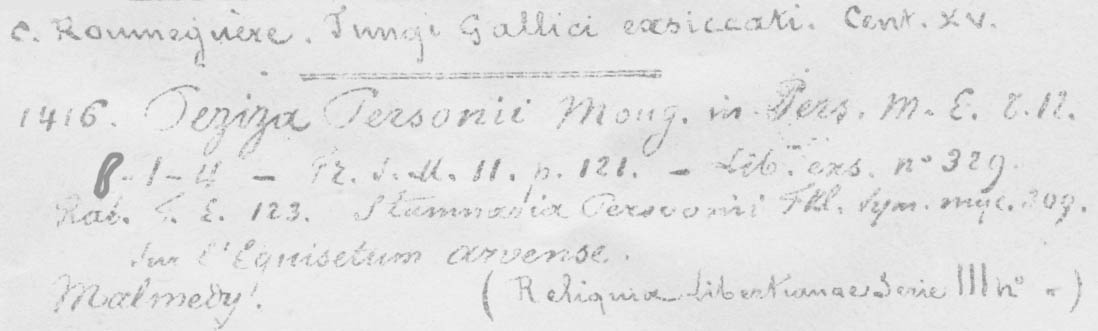 C. Roumeguère. Fungi Gallici exsiccati. Cent. XV.
1416. Peziza Personii Moug. in Pers. M. E. t. 12.
1-4 - Fr. S. M. 11. p. 121. - Lib. exs. n° 329.
Rab. F. E. 123. Stamnaria Persoonii Fkl. Sym. myc. 309.
Sur l'Equisetum arvense.
Malmedy!. (Reliquiae Libertianae Serie III n° -)